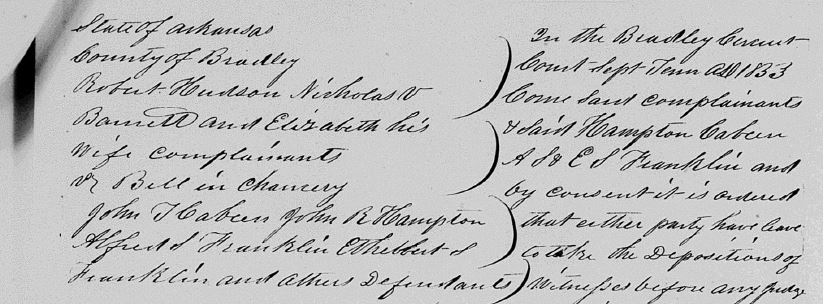 State of Arkansas
County of Bradley
Robert Hudson Nicholas V
Barnett and Elizabeth his
Wife complainants
vs Bill in Chancery
John T Cabeen John R Hampton
Alfred S Franklin Ethelbert S
Franklin and others Defendants
In the Bradley Circuit
Court Sept Term AD 1853
Come said complainants
& said Hampton Cabeen
A S & E S Franklin and
by consent it is ordered
that either party have leave
to take the Depositions of
Witnesses before any Judge